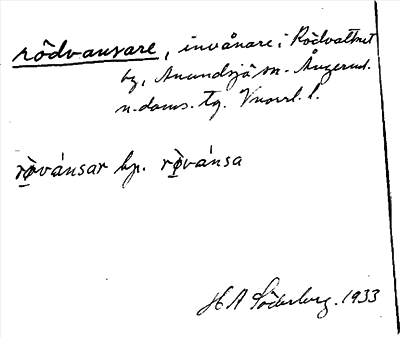 rödvansare, invånare i Rödvattnet
by, Anundsjö sn. Ångerml.
n. doms. tg. Vnorrl. l.
rö̀vánsar hp. rö̀vánsa
H A Söderberg. 1933